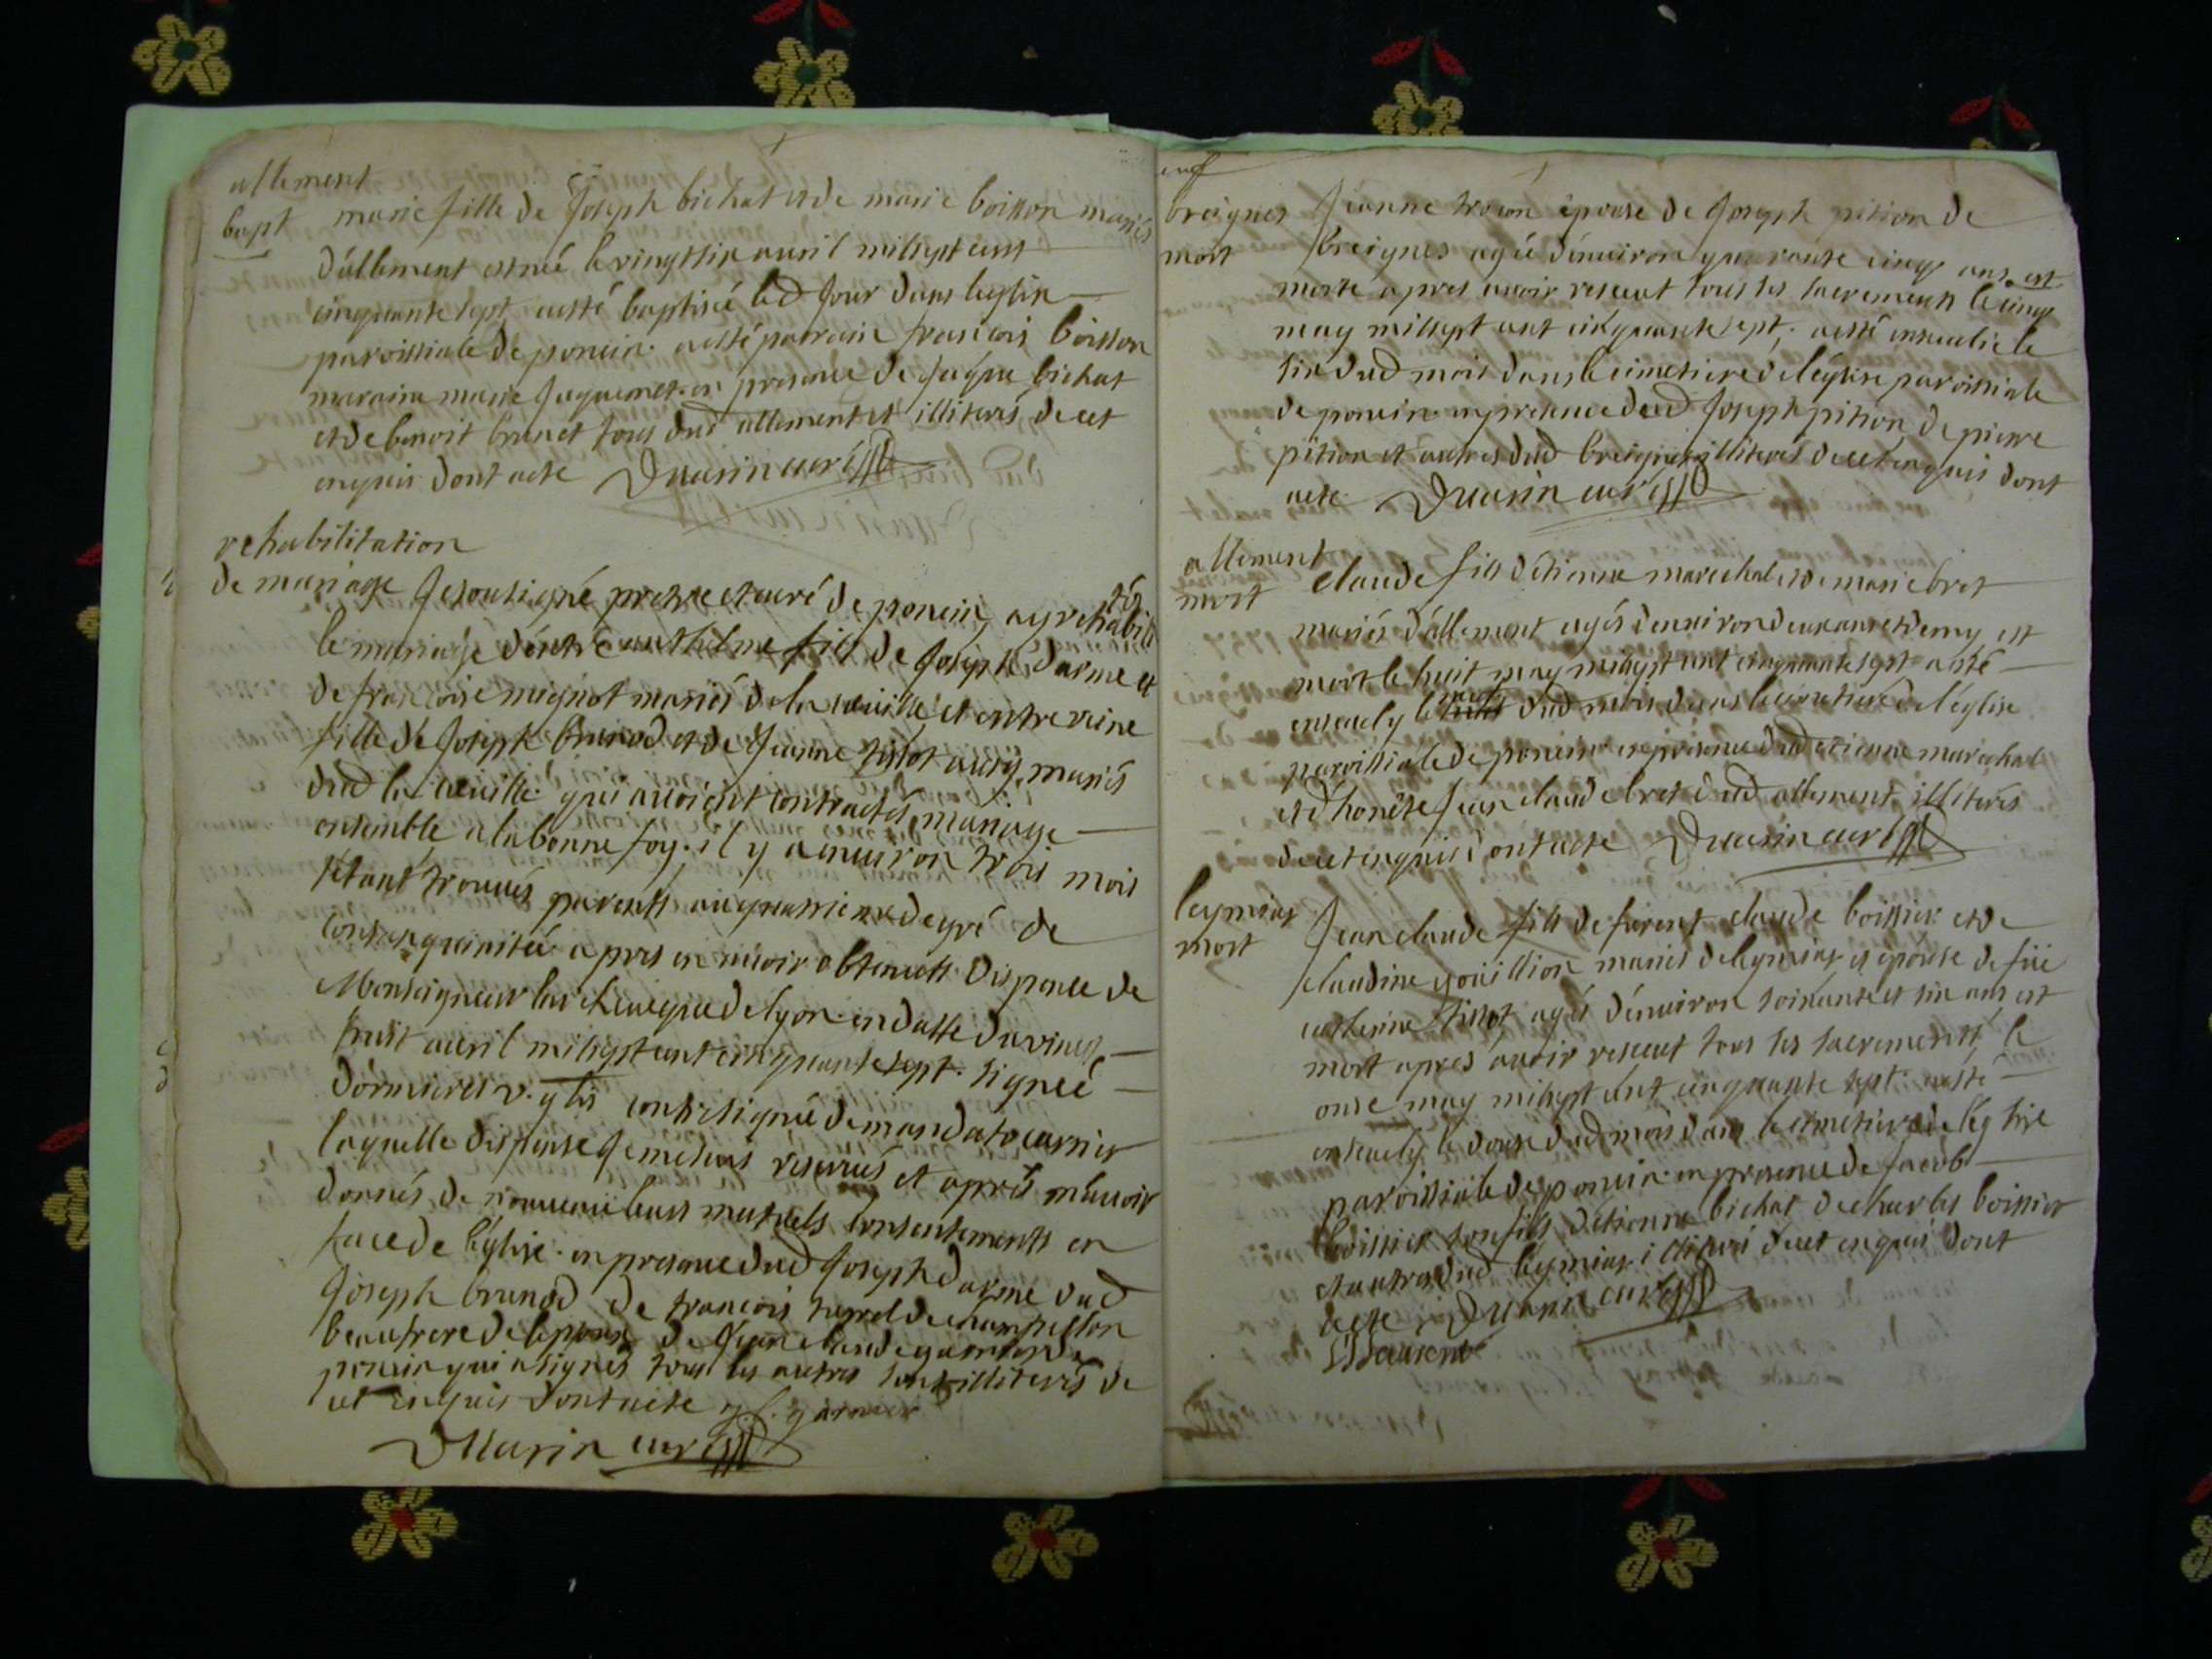 allement
bapt marie fille de Joseph bichat et de marie boisson mariés
d'allement est née le vingt six auril mil sept cent
cinquante sept a esté baptisée led Jour dans leglise
paroissiale de poncin a esté parrain francois boisson
maraine marie Juquenet en presence de bichat
et de benoit brunet tous dud allement et illiterés de cet
enquis dont acte Duarin curé
rehabilitation
de mariage Je soussigné prestre et curé de poncin ay rehabilité
le mariage d'entre anthelme fils de Joseph darme et
de francoise mignot mariés de la cueille et entre reine
fille de Joseph brunod et de Jeanne tissot aussy mariés
dud la cueille qui auoient contractés mariage
ensemble a la bonne foy il y a enuiron trois mois
s'étant trouués parents au quatrieme degré de
consanguinitée apres en auoir obtenut dispense de
Monseigneur larcheueque de lyon en datte du vingt
huit auril mil sept cent cinquante sept signée
Dormieres v. glis contresignée de mandato carrier
laquelle dispense Je me suis reserués et aprés m'auoir
donnés de nouueau leurs mutuels consentements en
face de léglise en presence dud Joseph darme dud
Joseph brunod de francois de
beaufrere de lepoux de Jean claude garnier de
poncin qui a signés tous les autres sont illiterés de
cet enquis dont acte J. C. garnier
Duarin curé
neuf
breignes Jeanne épouse de Joseph pition de
mort breignes agée d'enuiron quarante cinq ans est
morte apres auoir receut tous les sacrements le cinq
may mil sept cent cinquante sept, a esté enseuelie le
six dud mois dans le cimetiere de léglise paroissiale
de poncin en presence dud Joseph pition de pierre
pition et autres dud breignes illiterés de cet enquis dont
acte Duarin curé
allement claude fils d'étienne marechal et de marie bret
mort mariés d'allement agés d'enuiron deux ans et demy est
mort le huit may mil sept cent cinquante sept a esté
enseuely le neuf dud mois dans le cimetiere de léglise
paroissiale de poncin en presence dud etienne marechal
et d'honéte Jean claude bret dud allement illiterés
de cet enquis dont acte Duarin curé
leymiat Jean claude fils de furent claude boissier et de
mort claudine gouillion mariés de leymiat et épouse de füe
catherine tissot agés d'enuiron soixante et six ans est
mort apres auoir receut tous les sacrements le
onze may mil sept cent cinquante sept a esté
enseuely le douze dud mois dans le cimetiere de léglise
paroissiale de poncin en presence de Jacob
boissier son fils d'étienne bichat de charles boissier
et autres dud leymiat illiterés de cet enquis dont
acte Duarin curé